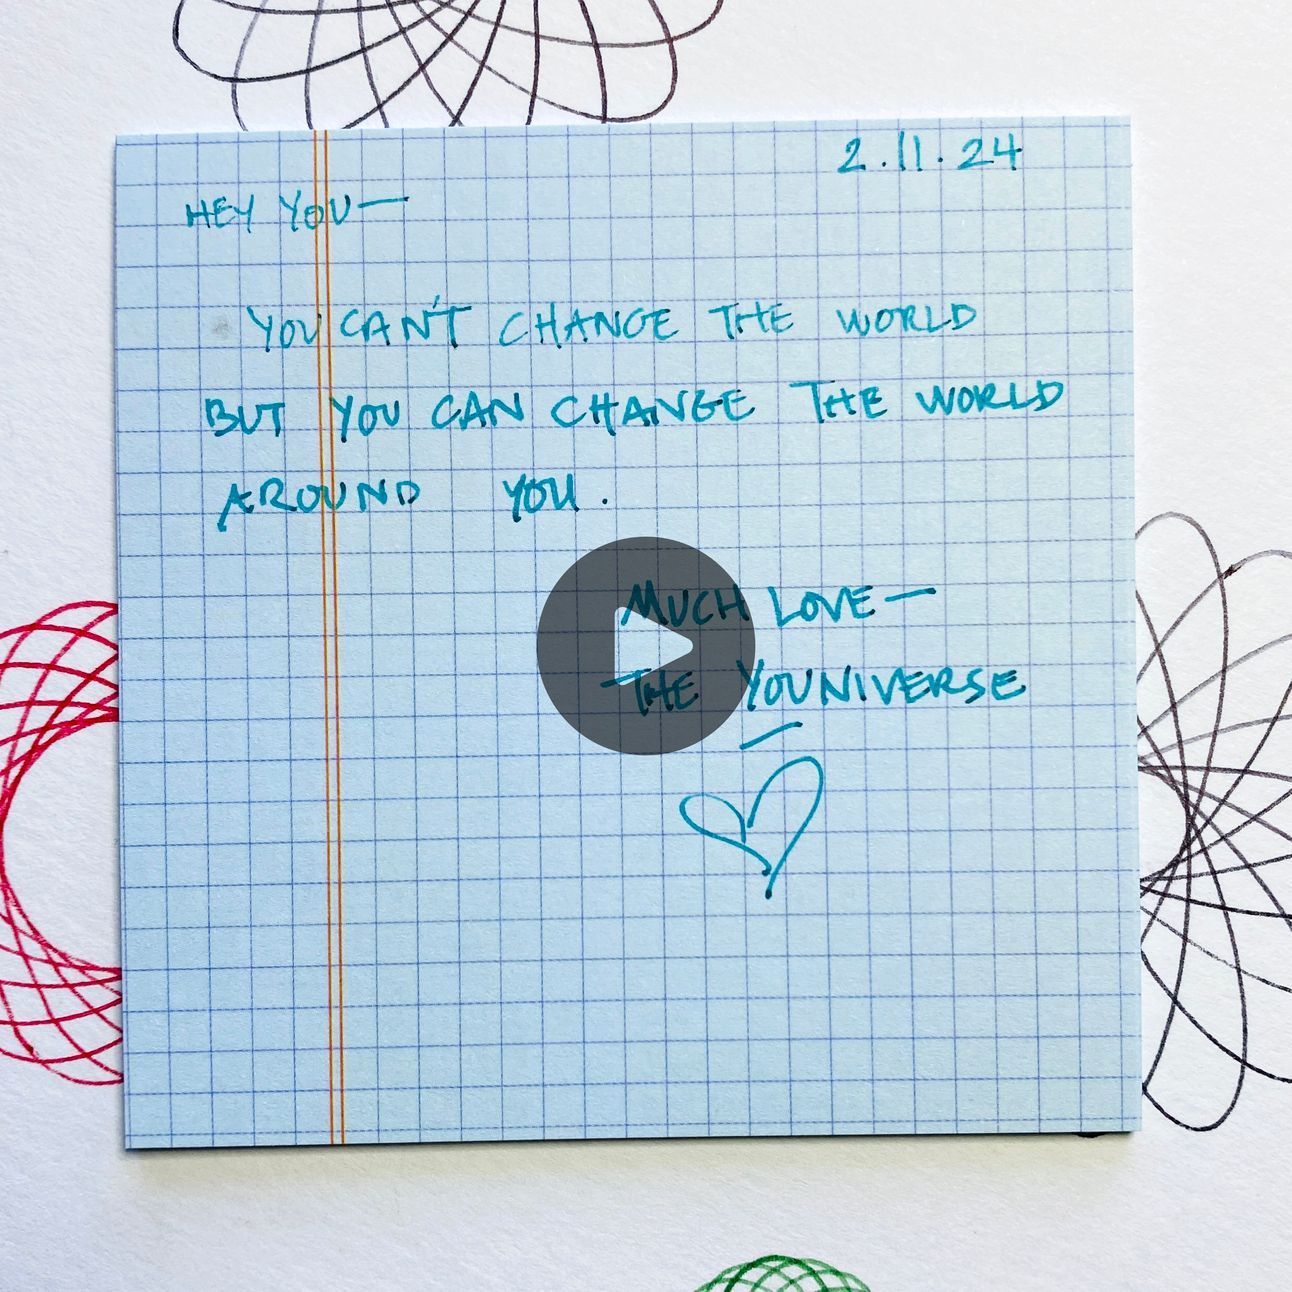 2.11.24
HEY YOU—
YOU CAN'T CHANGE THE WORLD
BUT YOU CAN CHANGE THE WORLD
AROUND YOU.
MUCH LOVE—
THE YOUNIVERSE